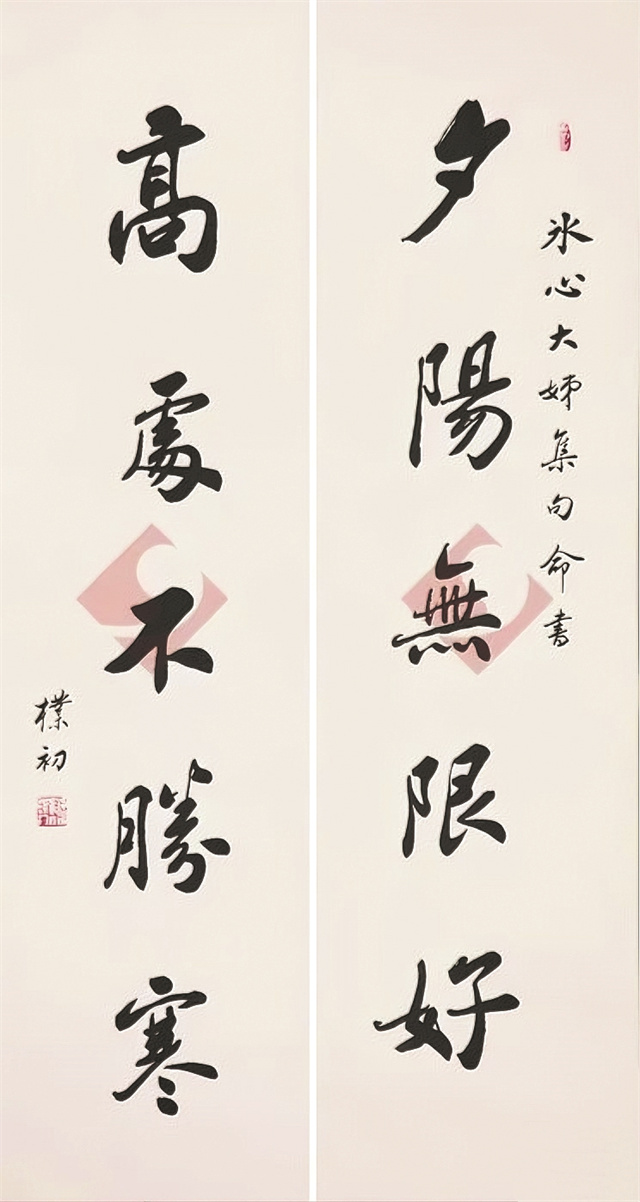 冰心大姊集句命書
夕陽無限好
高處不勝寒
樸初